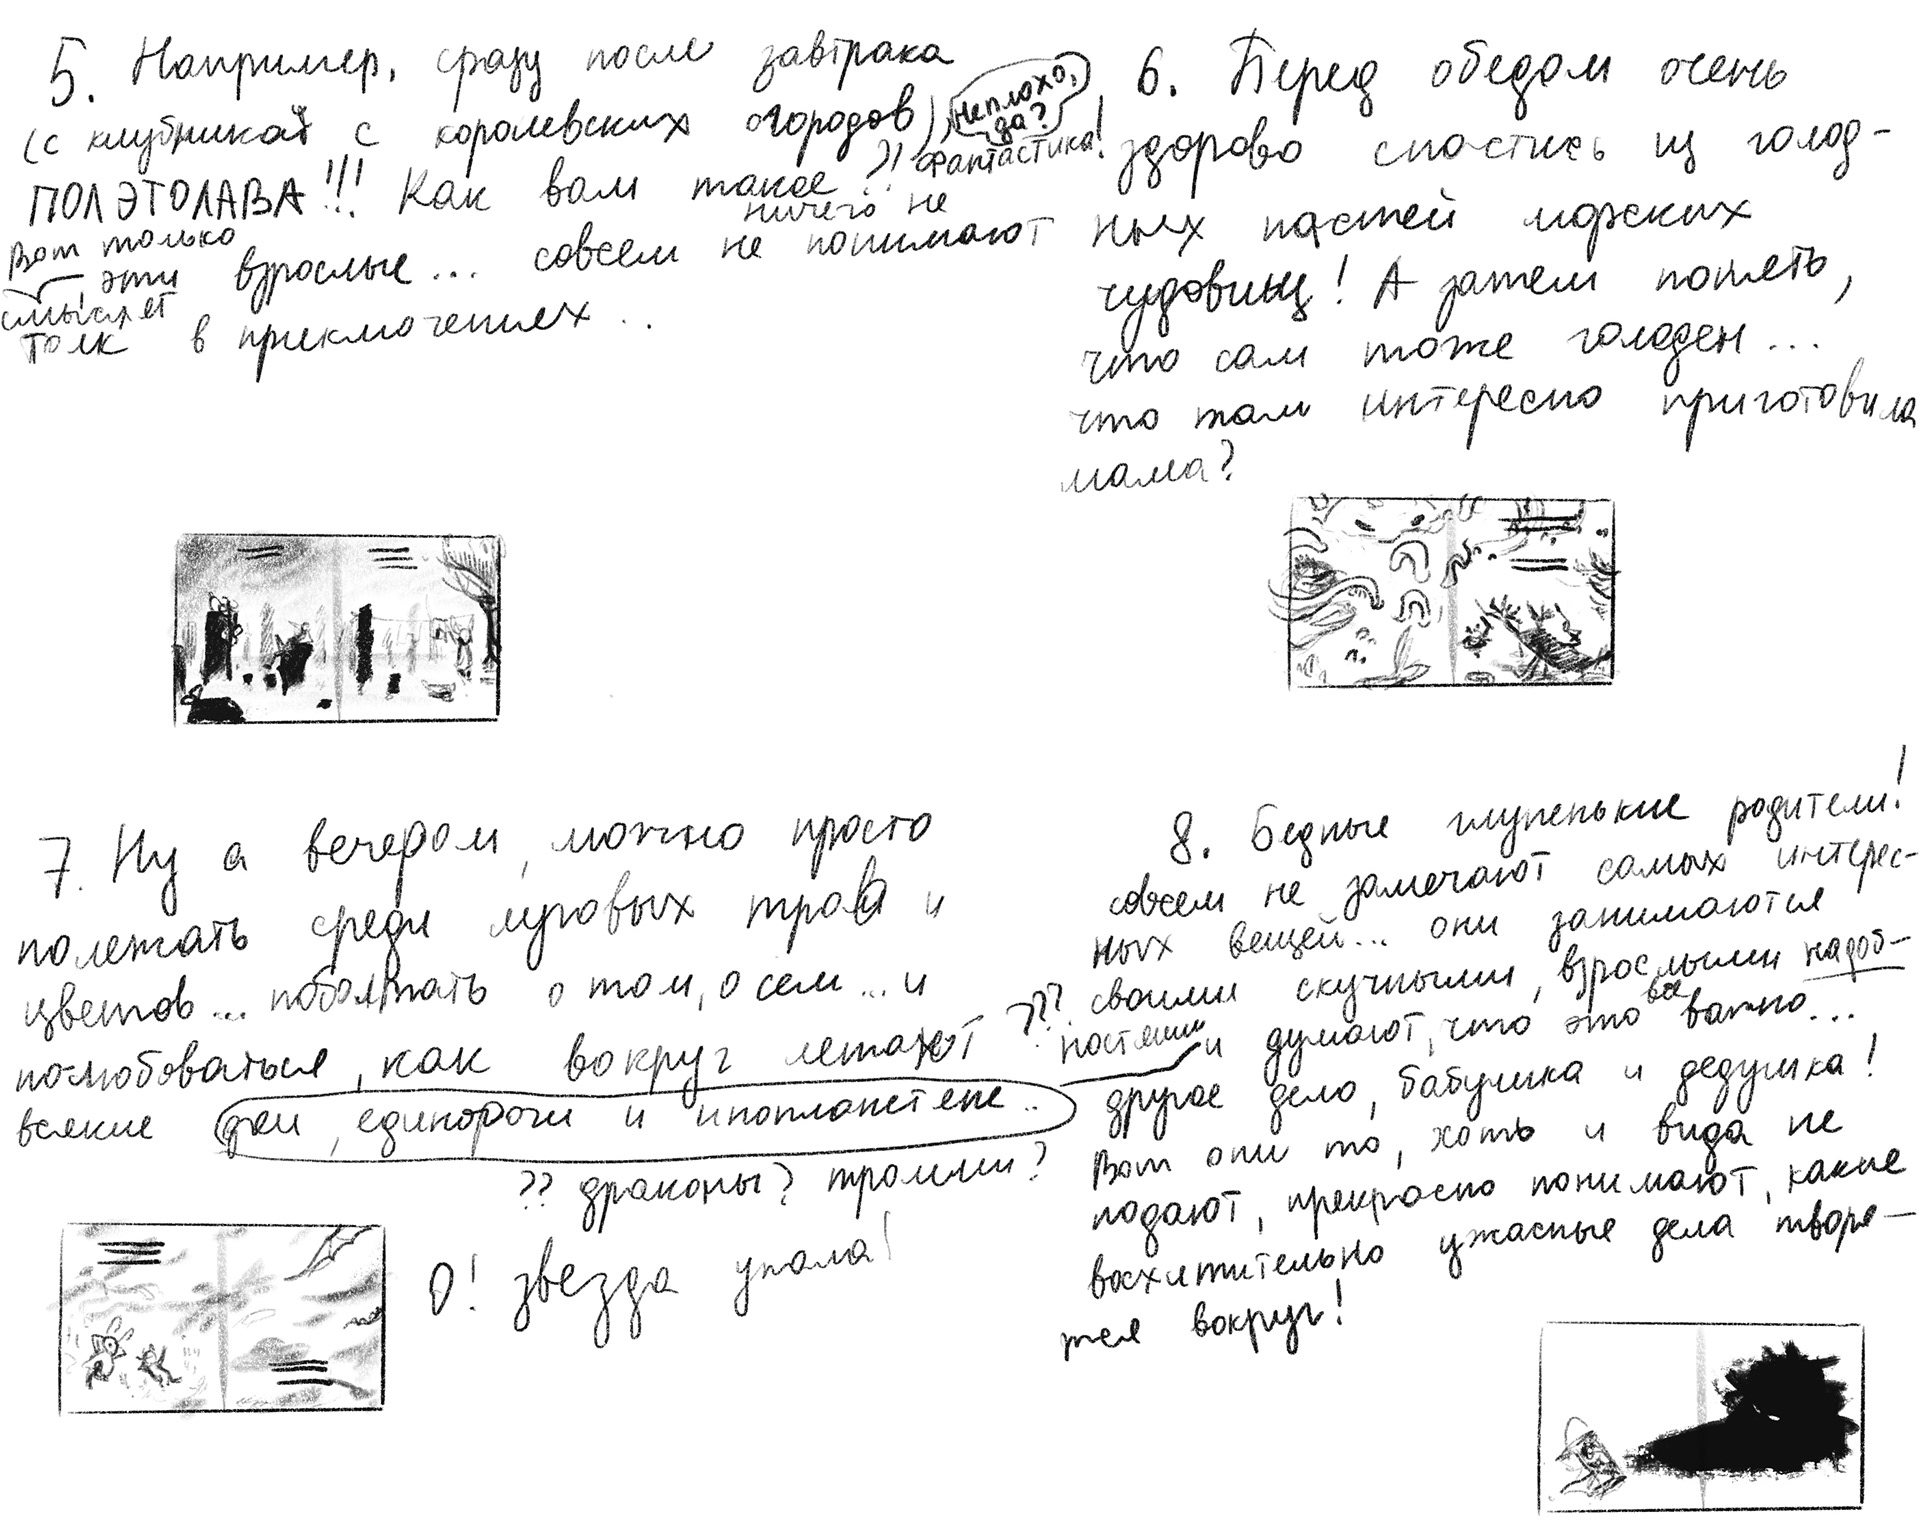 5. Например, сразу после завтрака
(с клубникой с королевских огородов),
Неплохо,
да?
Фантастика!
ПОЛ ЭТО ЛАВА!!! Как вам такое?!
Вот только
ничего не
эти взрослые... совсем не понимают
смыслят
толк в приключениях...
6. Перед обедом очень
здорово спастись из голод-
ных пастей морских
чудовищ! А затем понять,
что сам тоже голоден...
что там интересно приготовила
мама?
7. Ну а вечером, можно просто
полежать среди луговых трав и
цветов... поболтать о том, о сём... и
полюбоваться, как вокруг летают
всякие феи, единороги и инопланетене..
??? 
?? драконы? тролли?
О! звезда упала!
8. Бедные глупенькие родители!
совсем не замечают самых интерес-
ных вещей... они занимаются
своими скучными, взрослыми надоб-
ностями и думают, что это все важно...
другое дело, бабушка и дедушка!
Вот они то, хоть и вида не
подают, прекрасно понимают, какие
восхитительно ужасные дела творя-
тся вокруг!